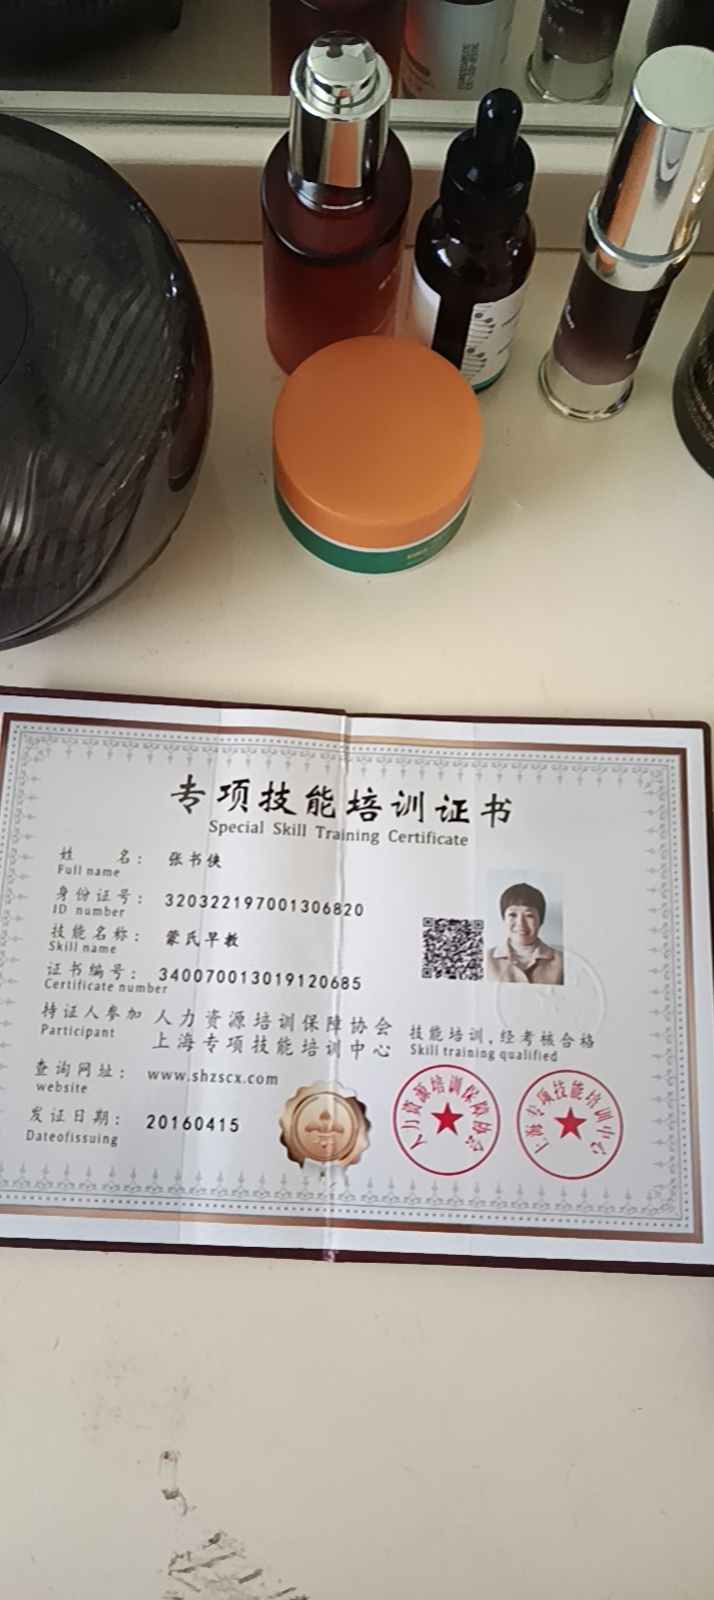 专项技能培训证书
Special Skill Training Certificate
姓 名： 张书侠
Full name
身份证号： 320322197001306820
ID number
技能名称： 蒙氏早教
Skill name
证书编号： 3400700013019120685
Certificate number
持证人参加 人力资源培训保障协会
Participant 上海专项技能培训中心
技能培训，经考核合格
Skill training qualified
查询网址： www.shzscx.com
website
发证日期： 20160415
Dateofissuing
人力资源培训保障协会
上海专项技能培训中心